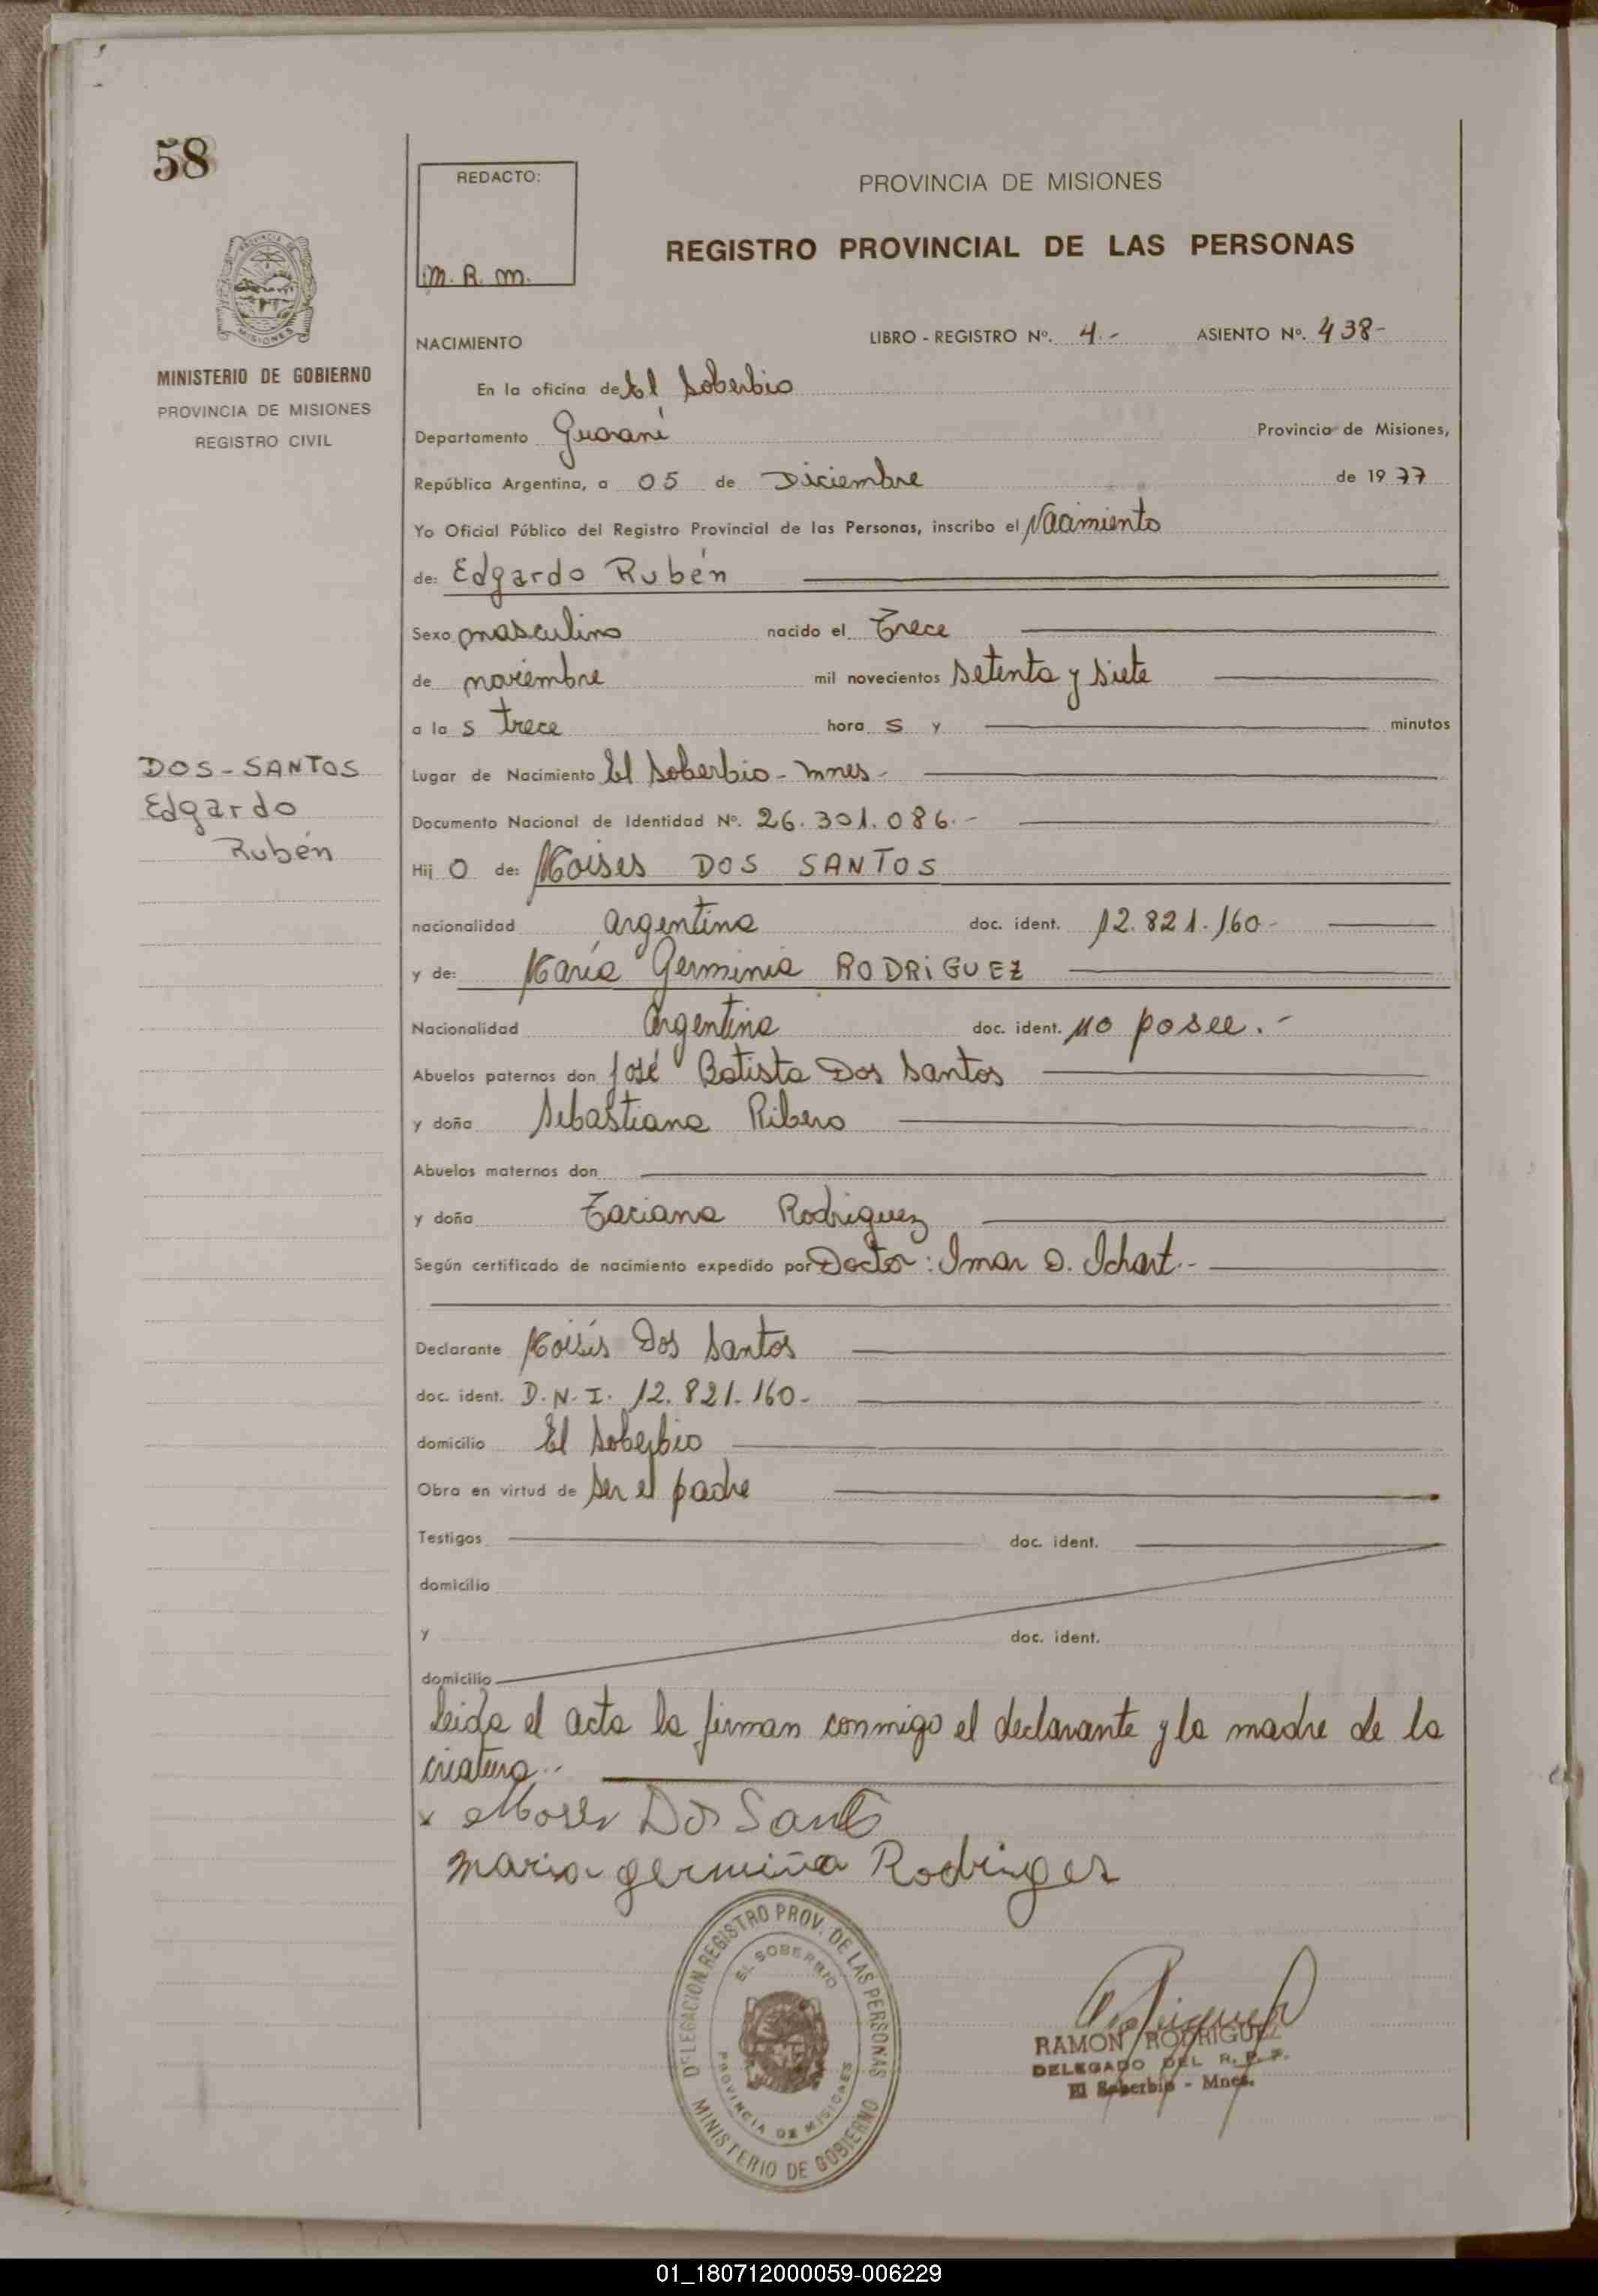 58
MINISTERIO DE GOBIERNO
PROVINCIA DE MISIONES
REGISTRO CIVIL
DOS-SANTOS
Edgardo
Rubén
REDACTO:
M. R. M.
PROVINCIA DE MISIONES
REGISTRO PROVINCIAL DE LAS PERSONAS
NACIMIENTO LIBRO - REGISTRO Nº. 4.- ASIENTO Nº. 438-
En la oficina de El Soberbio
Departamento Guaraní Provincia de Misiones,
República Argentina, a 05 de Diciembre de 1977
Yo Oficial Público del Registro Provincial de las Personas, inscribo el Nacimiento
de: Edgardo Rubén
Sexo masculino nacido el Trece
de noviembre mil novecientos setenta y siete
a la s trece hora s y minutos
Lugar de Nacimiento El Soberbio - Mnes-
Documento Nacional de Identidad Nº. 26.301.086.-
Hij o de: Moises DOS SANTOS
nacionalidad argentina doc. ident. 12.821.160-
y de: María Germinia RODRIGUEZ
Nacionalidad argentina doc. ident. no posee.-
Abuelos paternos don José Batista Dos Santos
y doña Sebastiana Ribero
Abuelos maternos don
y doña Taciana Rodriguez
Según certificado de nacimiento expedido por Doctor: Imar O. Ichart.-
Declarante Moisés Dos Santos
doc. ident. D.N.I. 12.821.160-
domicilio El Soberbio
Obra en virtud de ser el padre
Testigos doc. ident.
domicilio
y doc. ident.
domicilio
Leida el acta la firman conmigo el declarante y la madre de la
criatura.-
x Moises Dos Santo
maria germiña Rodriges
DELEGACION REGISTRO PROV. DE LAS PERSONAS
EL SOBERBIO
PROVINCIA DE MISIONES
MINISTERIO DE GOBIERNO
RAMON RODRIGUEZ
DELEGADO DEL R. P. P.
El Soberbio - Mnes.
01_180712000059-006229